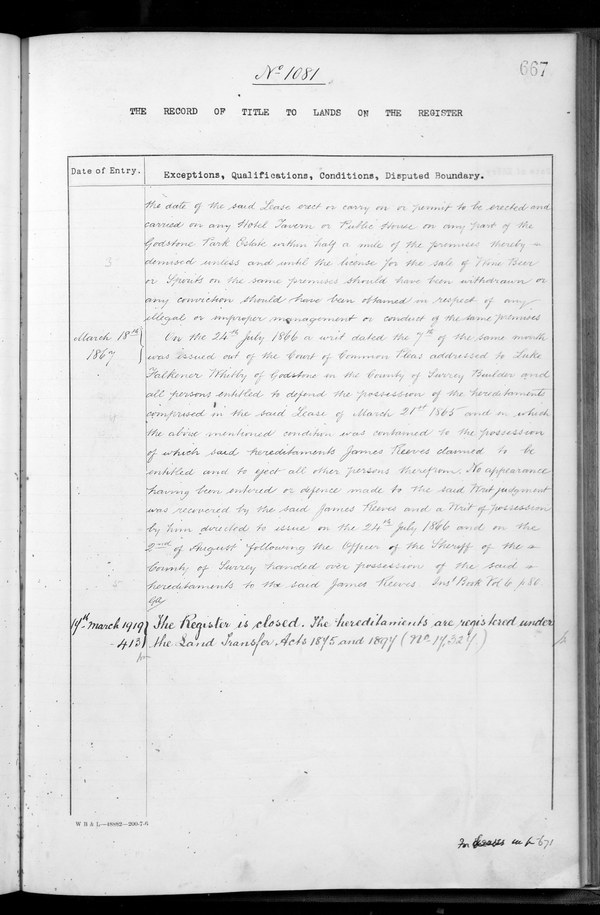 No 1081
667
THE RECORD OF TITLE TO LANDS ON THE REGISTER
Date of Entry.
Exceptions, Qualifications, Conditions, Disputed Boundary.
the date of the said Lease erect or carry on or permit to be erected and
carried on any Hotel Tavern or Public House on any part of the
Godstone Park Estate within half a mile of the premises thereby
demised unless and until the license for the sale of Wine Beer
or Spirits on the same premises should have been withdrawn or
any conviction should have been obtained in respect of any
illegal or improper management or conduct of the same premises
March 18th 1867
On the 24th July 1866 a writ dated the 7th of the same month
was issued out of the Court of Common Pleas addressed to Luke
Falkener Whitby of Godstone in the County of Surrey Builder and
all persons entitled to defend the possession of the hereditaments
comprised in the said Lease of March 21st 1865 and in which
the above mentioned condition was contained to the possession
of which said hereditaments James Reeves claimed to be
entitled and to eject all other persons therefrom. No appearance
having been entered or defence made to the said Writ judgment
was recovered by the said James Reeves and a Writ of possession
by him directed to issue on the 24th July 1866 and on the
2nd of August following the Officer of the Sheriff of the
County of Surrey handed over possession of the said
hereditaments to the said James Reeves. Inst Book Vol 6. p 80.
19th March 1919
413
The Register is closed. The hereditaments are registered under
the Land Transfer Acts 1875 and 1897 (No 17,327)
W B & L—48982—200-7-6
For Leases see p 671